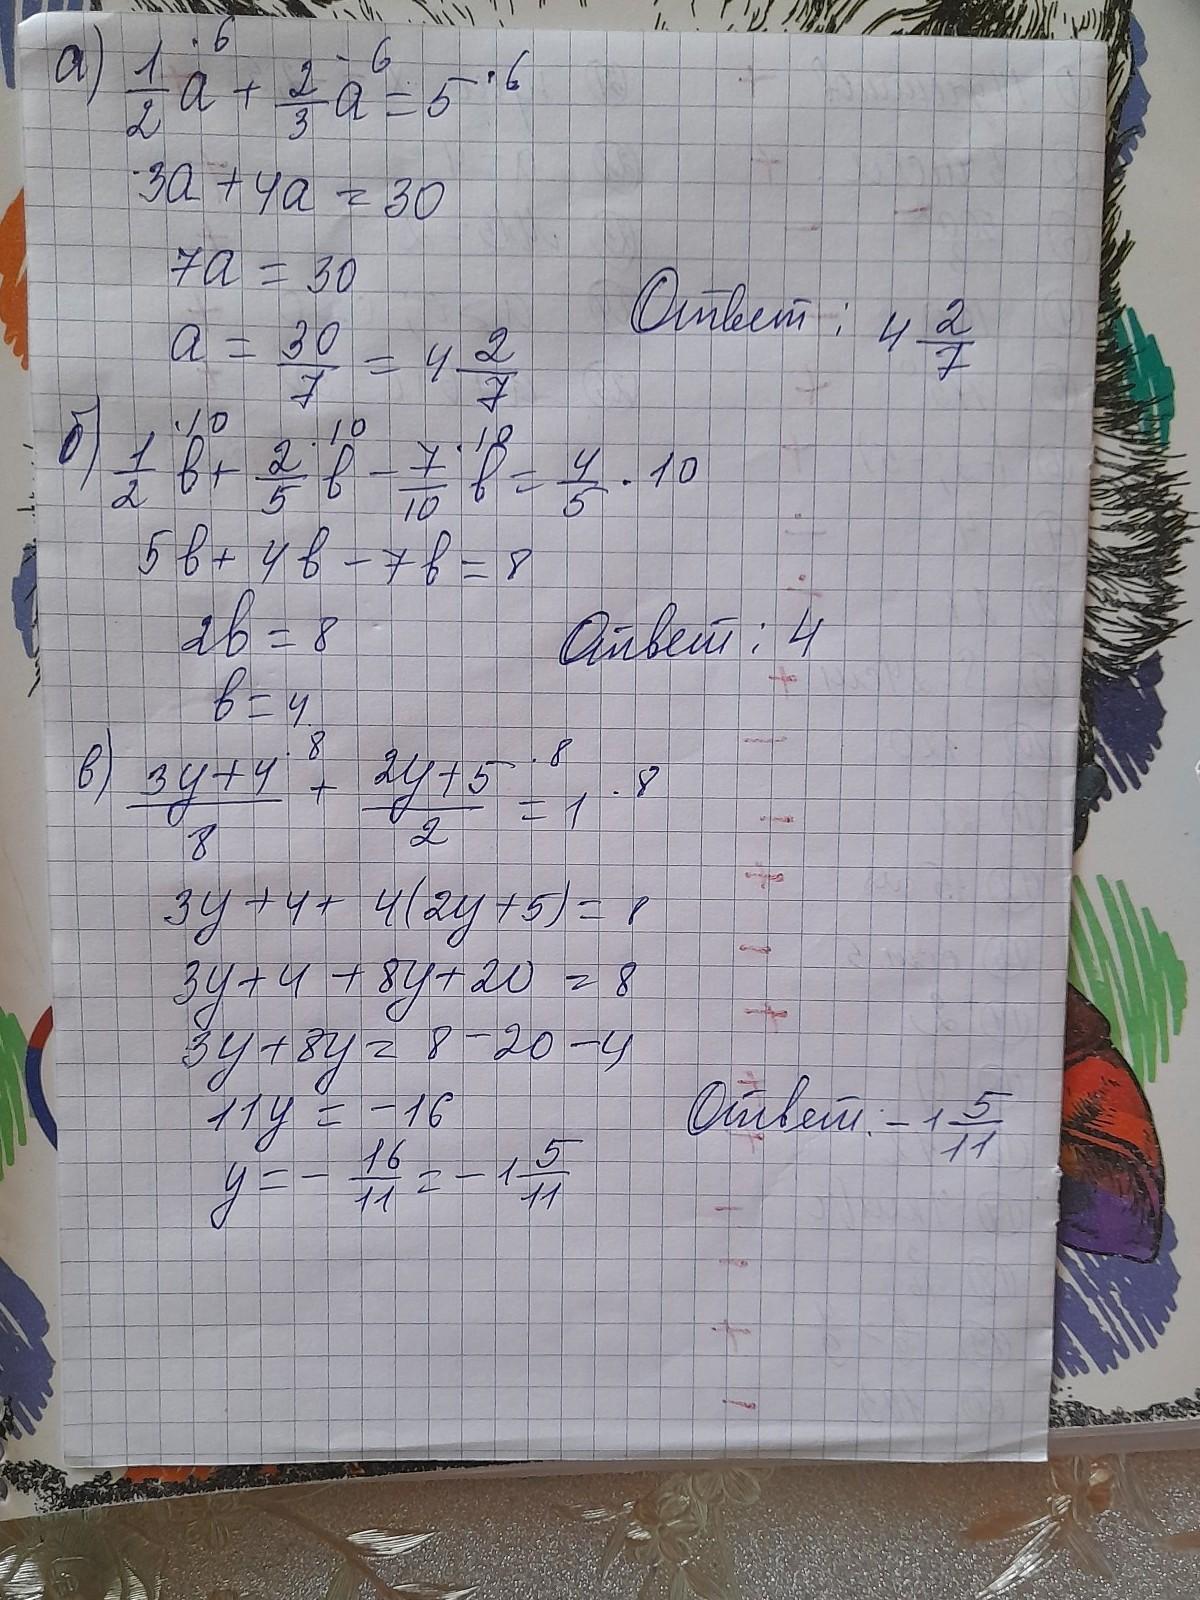 а) 1/2 а ·6 + 2/3 а ·6 = 5 ·6
3а + 4а = 30
7а = 30
а = 30/7 = 4 2/7
Ответ: 4 2/7
б) 1/2 в ·10 + 2/5 в ·10 - 7/10 в ·10 = 4/5 · 10
5в + 4в - 7в = 8
2в = 8
Ответ: 4
в = 4
в) (3у+4)/8 ·8 + (2у+5)/2 ·8 = 1 ·8
3у + 4 + 4(2у+5) = 8
3у + 4 + 8у + 20 = 8
3у + 8у = 8 - 20 - 4
11у = -16
у = - 16/11 = -1 5/11
Ответ: -1 5/11